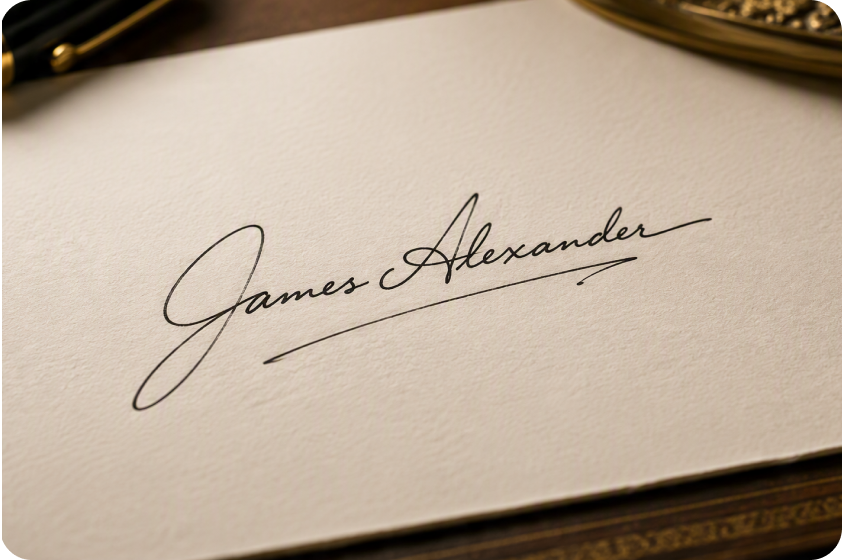 James Alexander